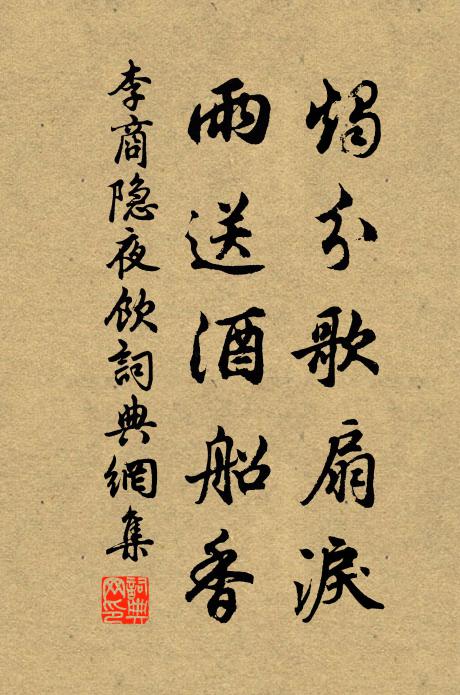 燭分歌扇淚
雨送酒船香
李商隐夜飲詞典網集
詞典网印